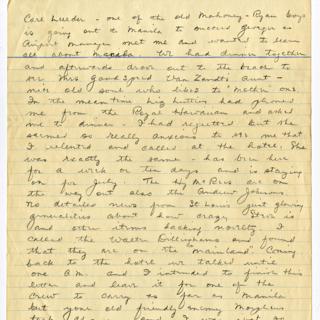 Carl Lueder - one of the old Mahoney-Ryan boys
is going out to Manila to succeed George as
Airport manager met me and wanted to learn
all about Manila. We had dinner together
and afterwards drove out to the beach to
see Mrs. Van Zandt's Aunt -
nice old soul who likes to "mother" one.
In the meantime had phoned
me from the Royal Hawaiian and asked
me to dinner - I had rejected but she
seemed so really anxious to see me that
I relented and called at the hotel. She
was exactly the same - has been here
for a week or ten days and is staying
on for July. The are on
the way out also the Andrew Johnsons.
No detailed news from St Louis just glowing
generalities about how crazy is
and other items lacking novelty. I
called the Walter Dillinghams and found
that they are on the mainland. Coming
back to the hotel we talked until
one A.M. and I intended to finish this
letter and leave it for one of the
crew to carry as far as Manila
but your old friendly enemy Morpheus